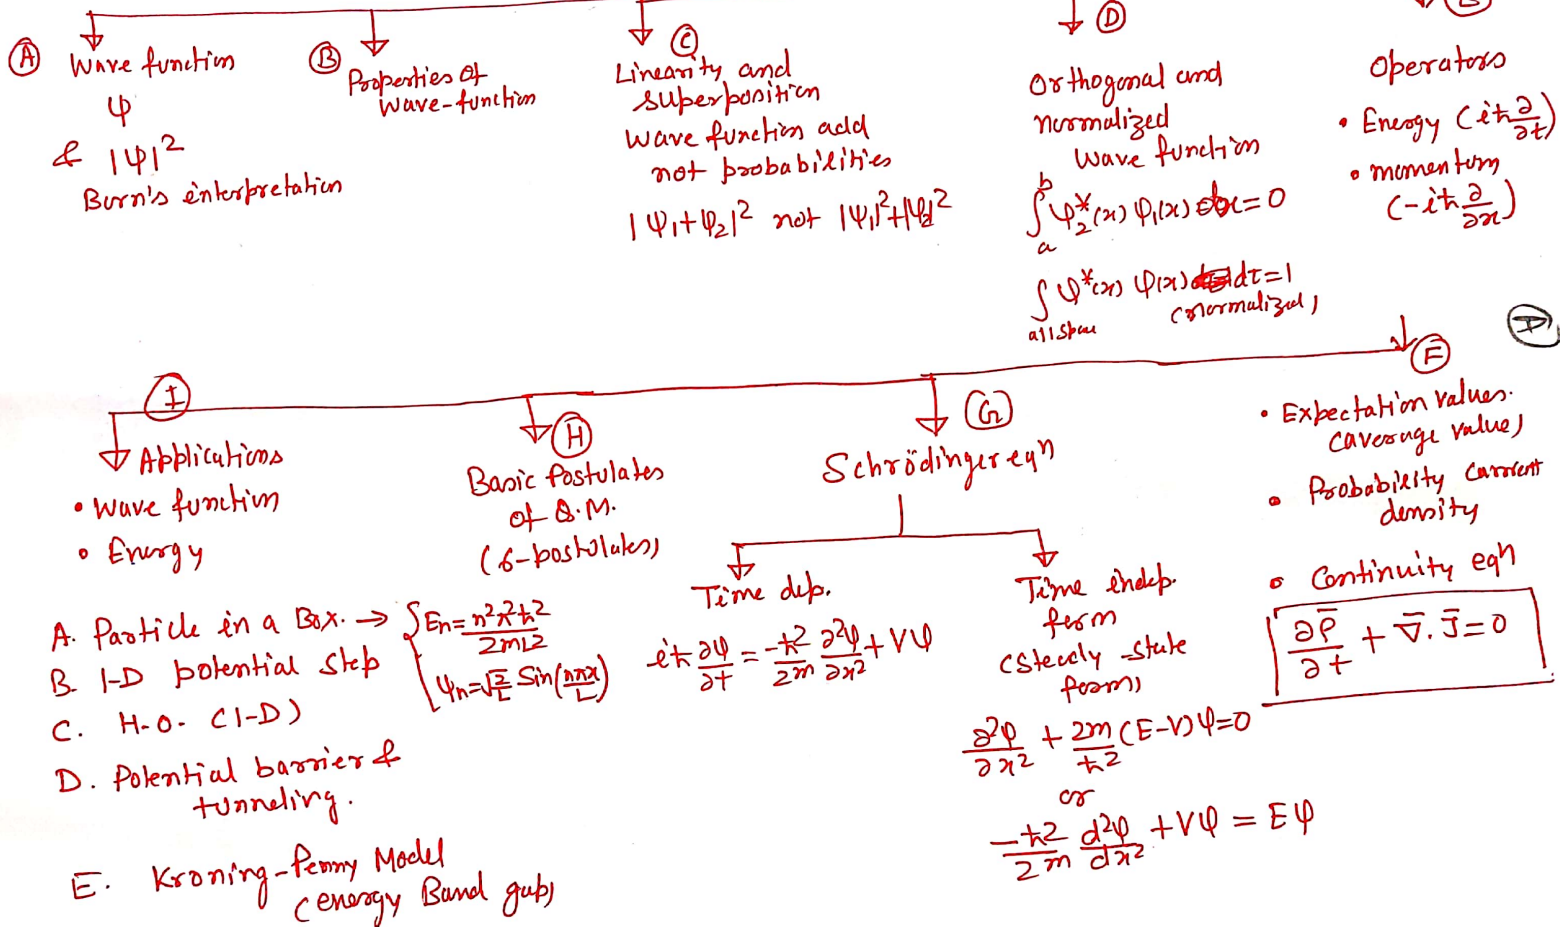 Ⓐ Wave function
ψ
& |ψ|²
Born's interpretation
Ⓑ Properties of
Wave-function
Ⓒ
Linearity and
superposition
wave function add
not probabilities
|ψ₁+ψ₂|² not |ψ₁|²+|ψ₂|²
Ⓓ
Orthogonal and
normalized
wave function
∫ₐᵇ ψ₂*(x) ψ₁(x) dx=0
∫ ψ*(x) ψ(x) dτ=1
all space (normalized)
Operators
• Energy (iħ ∂/∂t)
• momentum
(-iħ ∂/∂x)
Ⓕ
• Expectation values.
(average value)
• Probability current
density
• Continuity eqn
∂ρ/∂t + ∇.J=0
Ⓖ
Schrödinger eqn
Time dep.
iħ ∂ψ/∂t = -ħ²/2m ∂²ψ/∂x² + Vψ
Time indep.
form
(Steady-state
form)
∂²ψ/∂x² + 2m/ħ² (E-V)ψ=0
or
-ħ²/2m d²ψ/dx² + Vψ = Eψ
Ⓗ
Basic Postulates
of Q.M.
(6-postulates)
Ⓘ
Applications
• Wave function
• Energy
A. Particle in a Box. → { En= n²π²ħ²/2mL²
ψn=√2/L Sin(nπx/L)
B. 1-D potential step
C. H.O. (1-D)
D. Potential barrier &
tunneling.
E. Kroning-Penny Model
(energy Band gap)